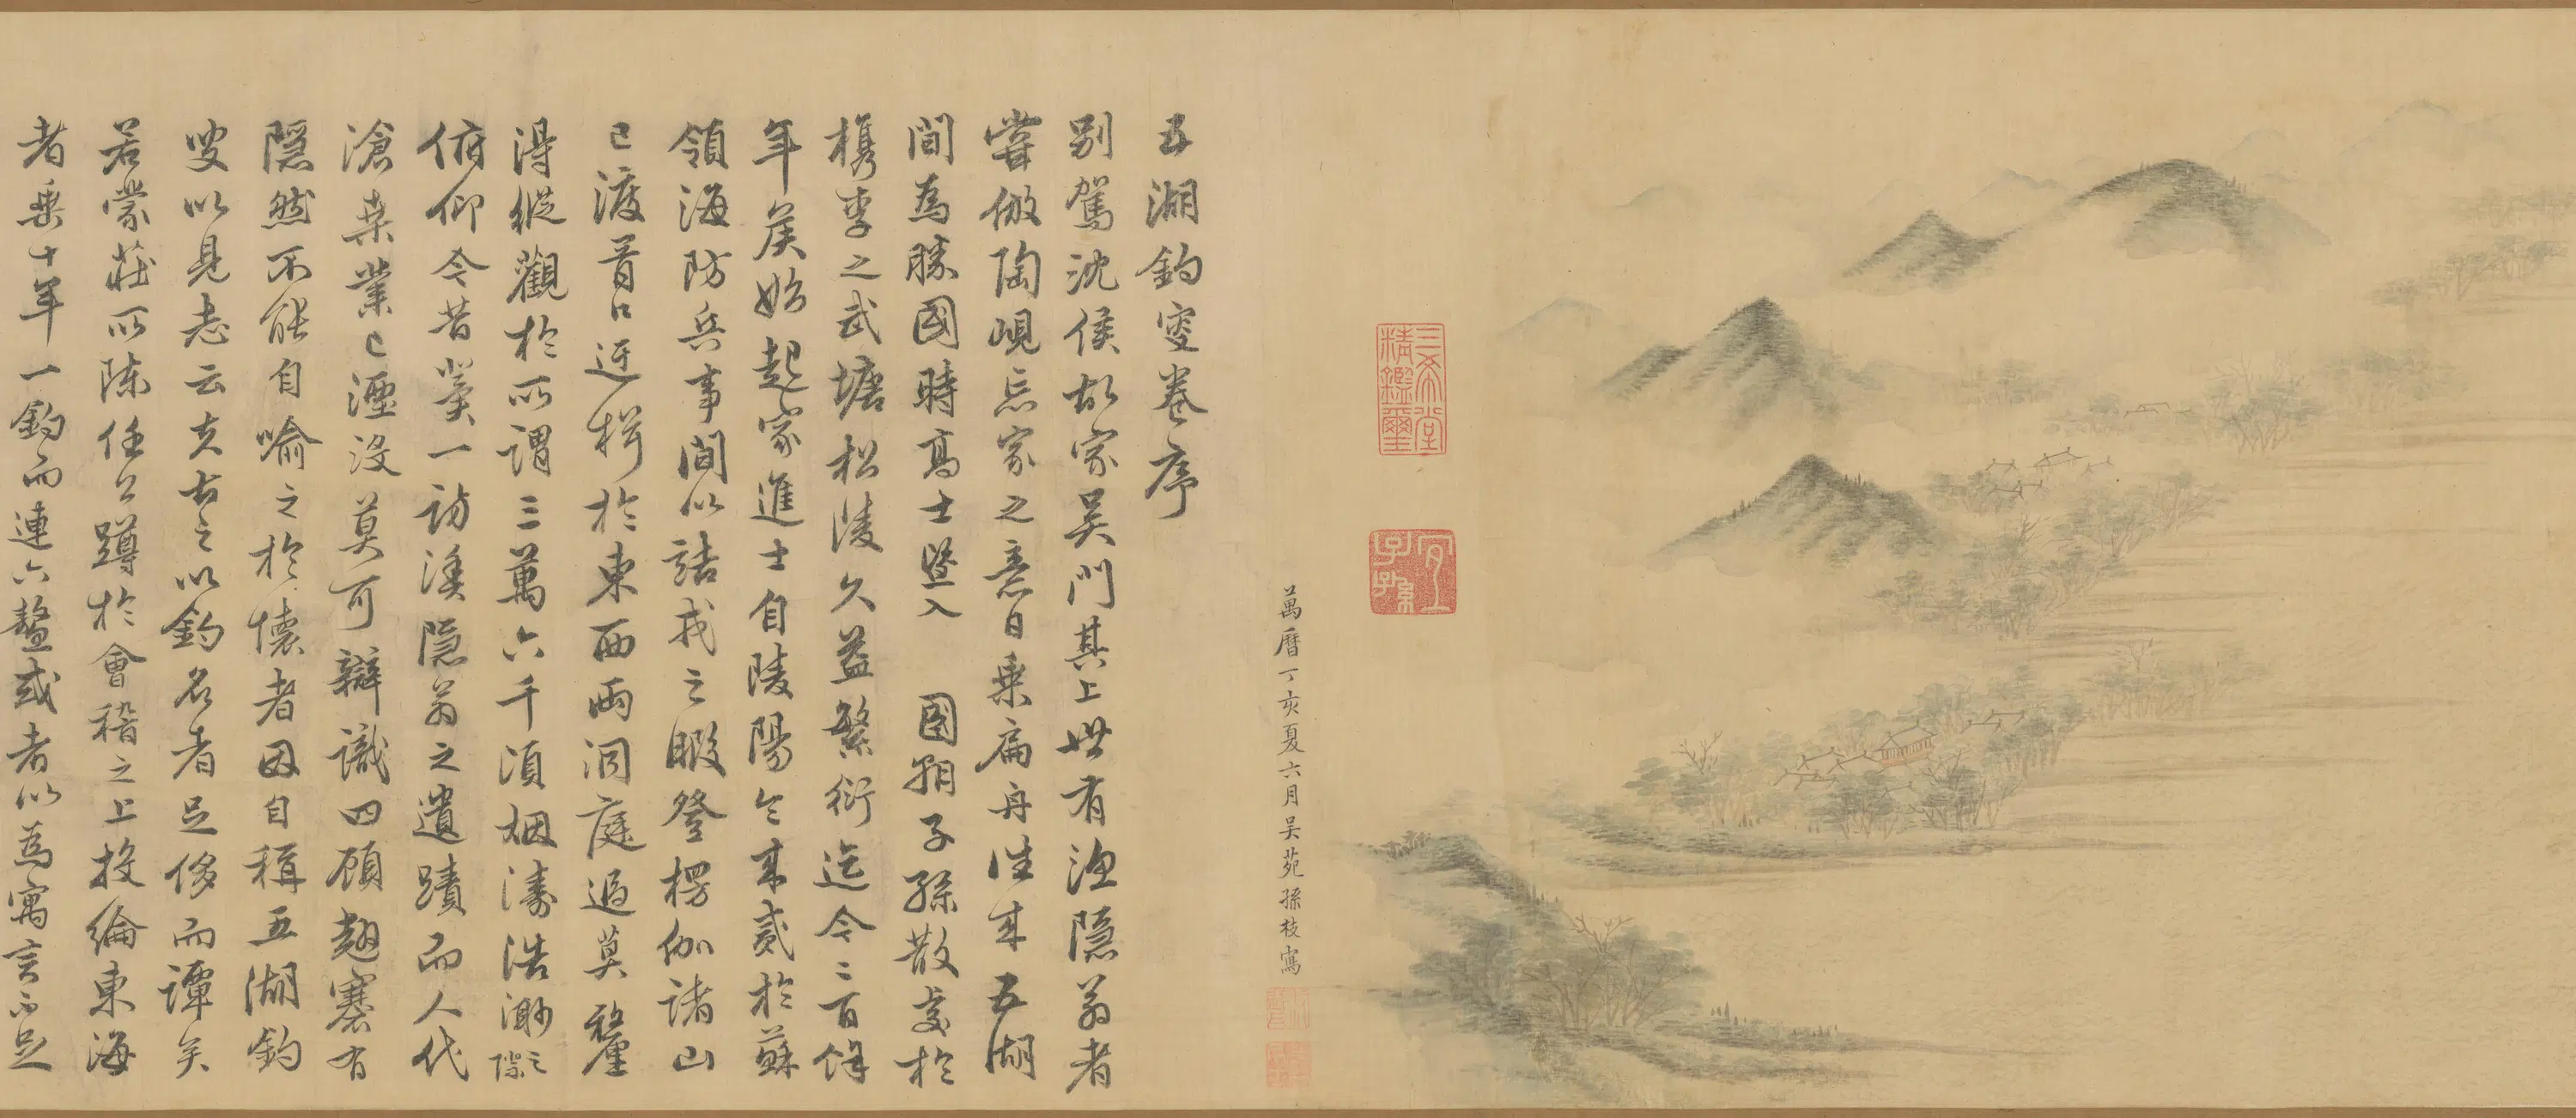 萬曆丁亥夏六月吳苑孫枝寫
三希堂精鑑璽
宜子孫
五湖釣叟卷序
別駕沈侯故家吳門其上世有漁隱翁者
嘗倣陶峴忘家之意日乗扁舟往来五湖
間為勝國時高士暨入 國朝子孫散處於
檇李之武塘松陵久益繁衍迄今二百餘
年矣侯始起家進士自陵陽令来貳於蘇
領海防兵事間以詰戎之暇登楞伽諸山
已渡胥口逰楫於東西兩洞庭過莫釐
得縱觀於所謂三萬六千頃烟濤浩渺之際
俯仰今昔業一訪漁隱翁之遺蹟而人代
滄桒業已湮沒莫可辯識四顧趦有
隱然不能自喻之於懷者因自稱五湖釣
叟以見志云夫古之以釣名者足侈而譚矣
若蒙莊所陳任公蹲於會稽之上投綸東海
者乗十年一釣而連六鼇或者以為寓言不足